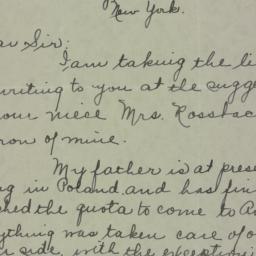 New York.
ar Sir:
I am taking the li
writing to you at the sugge
our niece Mrs. Rossbac
ron of mine.
My father is at prese
g in Poland and has fin
ched the quota to come to A
ything was taken care of o
r side, with the exception